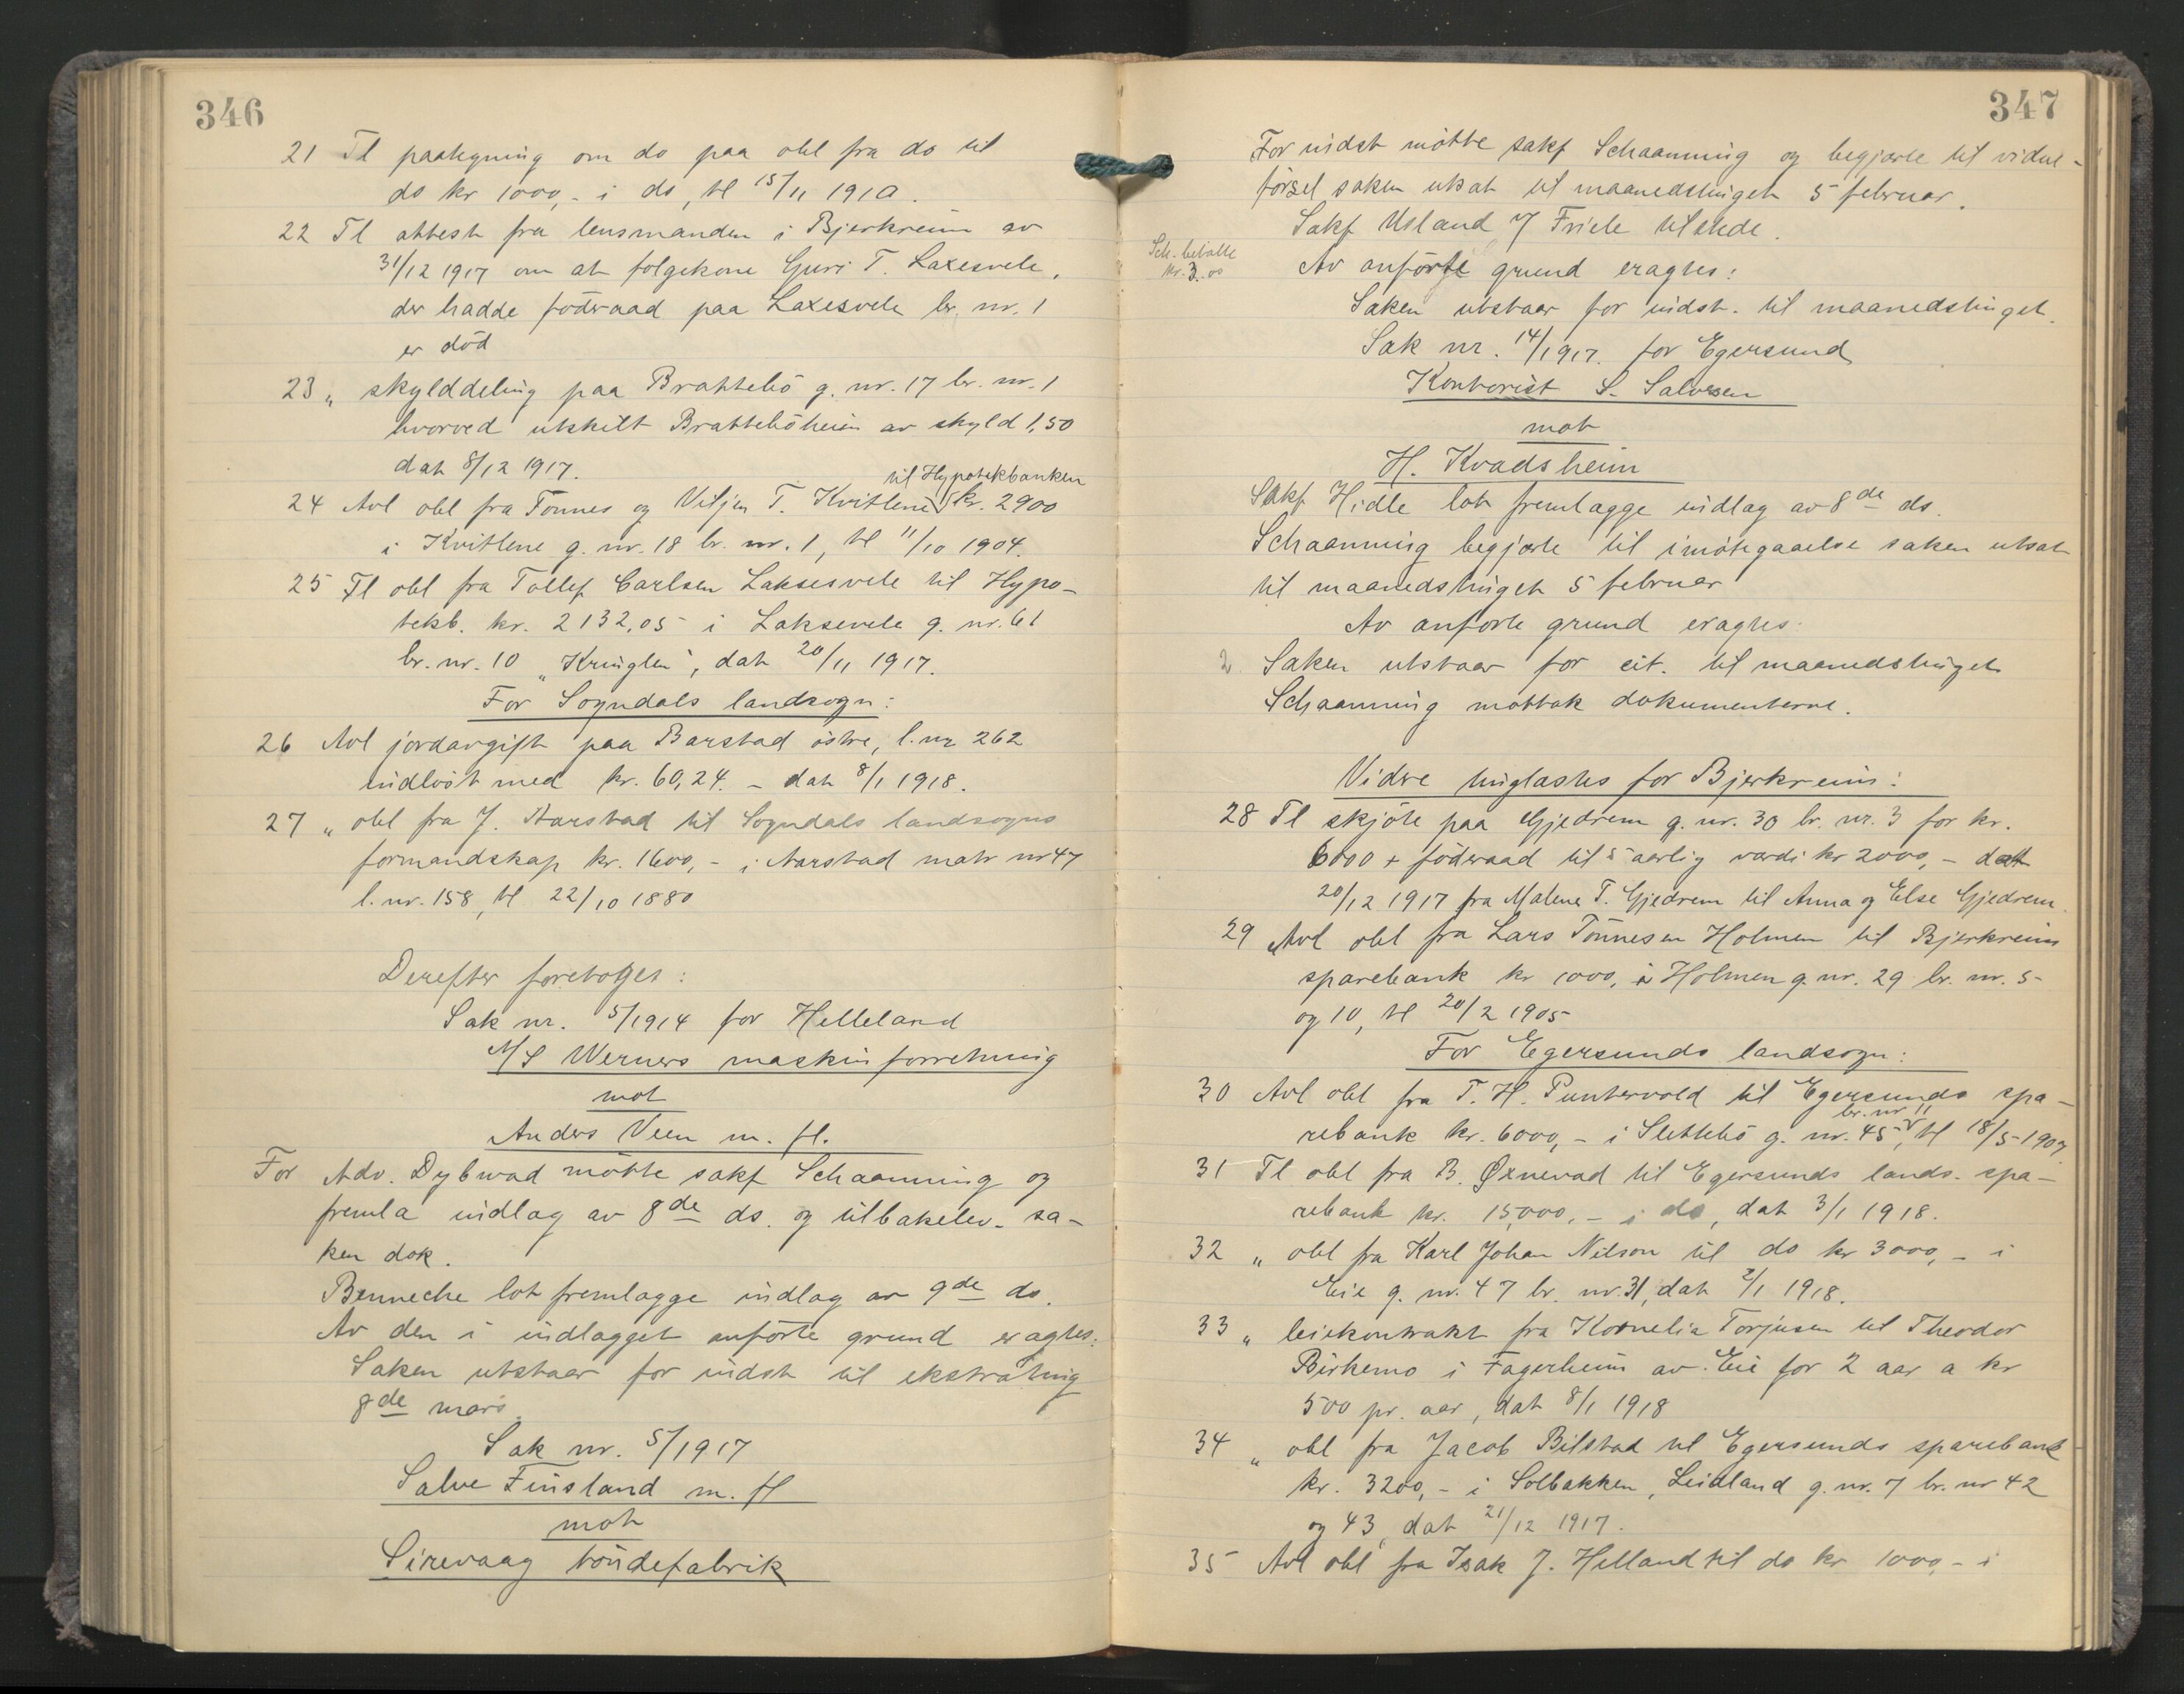 346
21 Tl paategning om do paa obl fra do til
do kr 1000,- i do, tl 15/11 1910.
22 Tl attest fra lensmanden i Bjerkreim av
31/12 1917 om at følgekone Guri T. Laxesvele,
der hadde föderaad paa Laxesvele br. nr. 1
er död
23 „ skylddeling paa Brattebö g. nr. 17 br. nr. 1
hvorved utskilt Bratteböheim av skyld 1,50
dat 8/12 1917.
til Hypotekbanken
24 Avl obl fra Tönnes og Veljen T. Kvitlene kr. 2900
i Kvitlene g. nr. 18 br. nr. 1, tl 11/10 1904.
25 Tl obl fra Tollef Carlsen Laksesvele til Hypo-
tekb. kr. 2132,05 i Laksevele g. nr. 61
br. nr. 10 „Kringlen", dat 20/11 1917.
For Sogndals landsogn:
26 Avl jordavgift paa Barstad östre, l. nr 262
indlöst med kr. 60,24. - dat 8/1 1918.
27 „ obl fra J. Aarstad til Sogndals landsogns
formandskap kr. 1600,- i Aarstad matr nr 47
l. nr. 158, tl 22/10 1880
Derefter foretoges:
Sak nr. 5/1914 for Helleland
A/S Werners maskinforretning
mot
Anders Veen m. fl.
For Adv. Dybwad mötte sakf Schaanning og
fremla indlæg av 8de ds. og tilbakelev. sa-
ken dok.
Benneche lot fremlægge indlæg av 9de ds.
Av den i indlægget anförte grund eragtes:
Saken utstaar for indst til ekstrating
8de mars.
Sak nr. 5/1917
Salve Finsland m. fl
mot
Sirevaag töndefabrik
347
For indst mötte sakf Schaanning og begjærte til videre-
försel saken utsat til maanedstinget 5 februar.
Sakf Usland J Friele tilstede.
Sch. betalte
kr. 3.00
Av anförte grund eragtes:
Saken utstaar for indst. til maanedstinget.
Sak nr. 14/1917. for Egersund
Kontorist S. Salvesen
mot
H. Kvadsheim
Sakf Hidle lot fremlægge indlæg av 8de ds.
Schaanning begjærte til imötegaaelse saken utsat
til maanedstinget 5 februar
Av anförte grund eragtes:
2 Saken utstaar for cit. til maanedstinget
Schaanning mottok dokumenterne.
Videre tinglæstes for Bjerkreim:
28 Tl skjöte paa Gjedrem g. nr. 30 br. nr. 3 for kr.
6000 + föderaad til 5 aarlig værdi kr 2000,- dat
20/12 1917 fra Malene T. Gjedrem til Anna og Else Gjedrem.
29 Avl obl fra Lars Tönnesen Holmen til Bjerkreim
sparebank kr 1000, i Holmen g. nr. 29 br. nr. 5
og 10, tl 20/2 1905
For Egersunds landsogn:
30 Avl obl fra T. H. Puntervold til Egersunds spa-
br. nr 11
rebank kr. 6000,- i Slettebö g. nr. 45, tl 18/5 1907.
31 Tl obl fra B. Øxnevad til Egersunds lands. spa-
rebank kr. 15,000,- i do, dat 3/1 1918.
32 „ obl fra Karl Johan Nilson til do kr 3000,- i
Eie g. nr. 47 br. nr. 31, dat 2/1 1918.
33 „ leiekontrakt fra Kornelia Torjusen til Theodor
Birkemo i Fagerheim av Eie for 2 aar a kr
500 pr. aar, dat 8/1 1918
34 „ obl fra Jacob Bilstad til Egersunds sparebank
kr. 3200,- i Solbakken, Leidland g. nr. 7 br. nr 42
og 43, dat 21/12 1917.
35 Avl obl fra Isak J. Helland til do kr 1000,- i